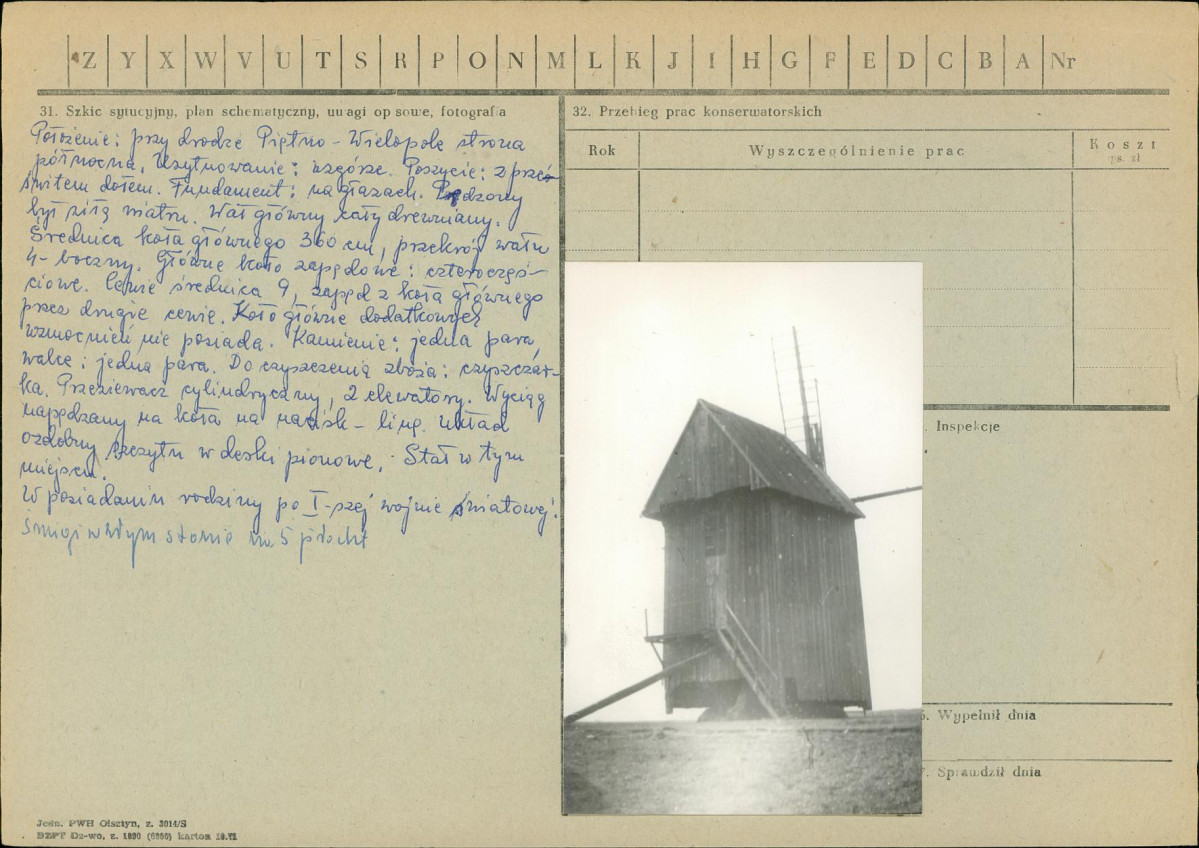 Z Y X W V U T S R P O N M L K J I H G F E D C B A Nr
31. Szkic sytucyjny, plan schematyczny, uwagi opisowe, fotografia
Położenie: przy drodze Piętno - Wielopole strona
północna. Usytuowanie: wzgórze. Poszycie: z prze-
świtem dołem. Fundament: na głazach. Pędzony
był siłą wiatru. Wał główny cały drewniany.
Średnica koła głównego 360 cm, przekrój wału
4-boczny. Główne koło zapędowe: czteroczęś-
ciowe. Cewie średnica 9, zappd z koła głównego
przez drugie cewię. Koło główne dodatkowych
wzmocnień nie posiada. Kamienie: jedna para,
walce: jedna para. Do czyszczenia zboża: czyszczar-
ka. Przesiewacz cylindryczny, 2 elewatory. Wyciąg
napędzany na koła na nacisk - ling. Układ
ozdobny szczytu w deski pionowe. Stał w tym
miejscu.
W posiadaniu rodziny po I-szej wojnie światowej.
Śmigi w złym stanie na 5 płacht
32. Przebieg prac konserwatorskich
Rok
Wyszczególnienie prac
Koszt
ps. zł
Inspekcje
Wypełnił dnia
Sprawdził dnia
Jedn. PWH Olsztyn, z. 3014/S
BZPT Dz-wo, z. 1890 (6000) karton